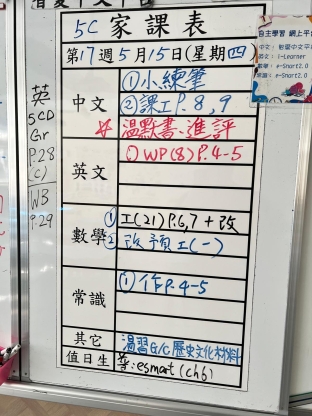 5C 家課表
第17週5月15日(星期四)
中文
①小練筆
②課工P.8,9
溫默書、進評
英文
①WP(8)P.4-5
數學
①工(21)P.6,7+改
②改預工(一)
常識
①作P.4-5
其它
溫習G/C歷史文化材料
值日生
普:esmart(ch6)
英
5CD
Gr
P.28
(C)
WB
P.29
自主學習 網上平台
i-Learner
e-Smart2.0
e-Smart2.0